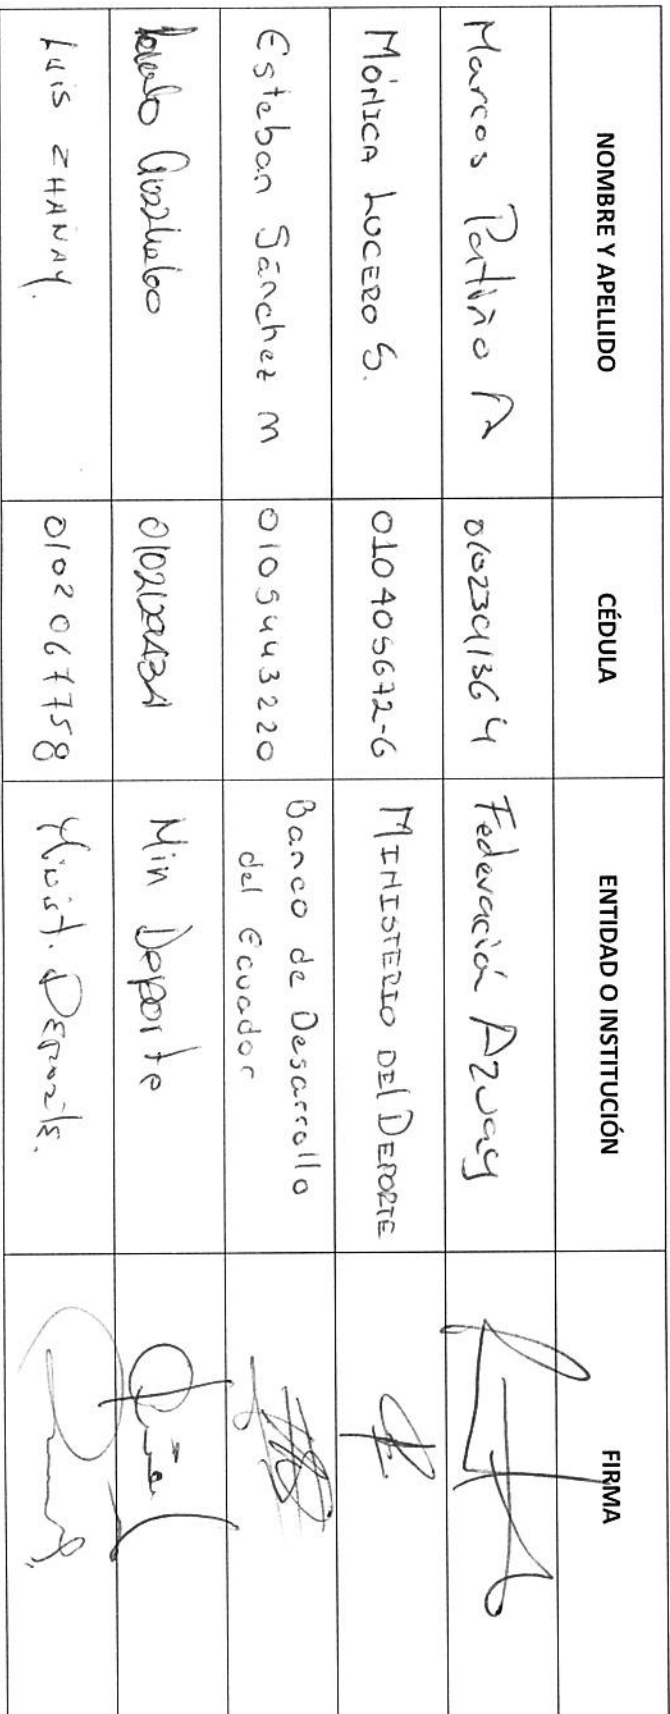 NOMBRE Y APELLIDO CÉDULA ENTIDAD O INSTITUCIÓN FIRMA
Marcos Patiño A Federación Azuay
MÓNICA LUCERO S. 010405672-6 MINISTERIO DEL DEPORTE
Esteban Sánchez M 0105443220 Banco de Desarrollo
del Ecuador
Min Deporte
Luis ZHAÑAY. 0102067758 Minist. DEPORTE.